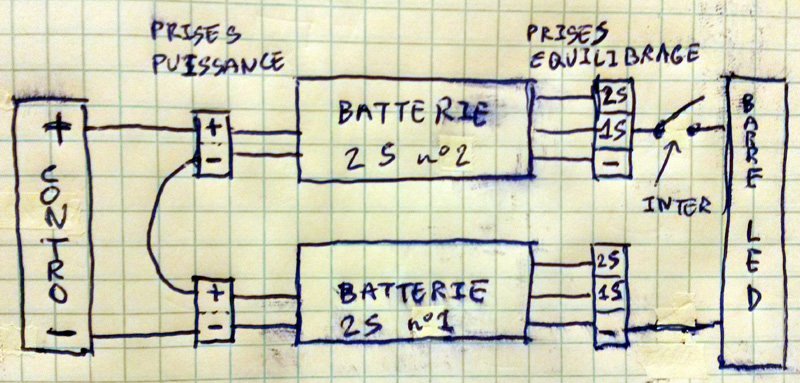 PRISES
PUISSANCE
PRISES
EQUILIBRAGE
+
CONTRO
-
+
-
BATTERIE
2S n°2
2S
1S
-
INTER
BARRE LED
+
-
BATTERIE
2S n°1
2S
1S
-